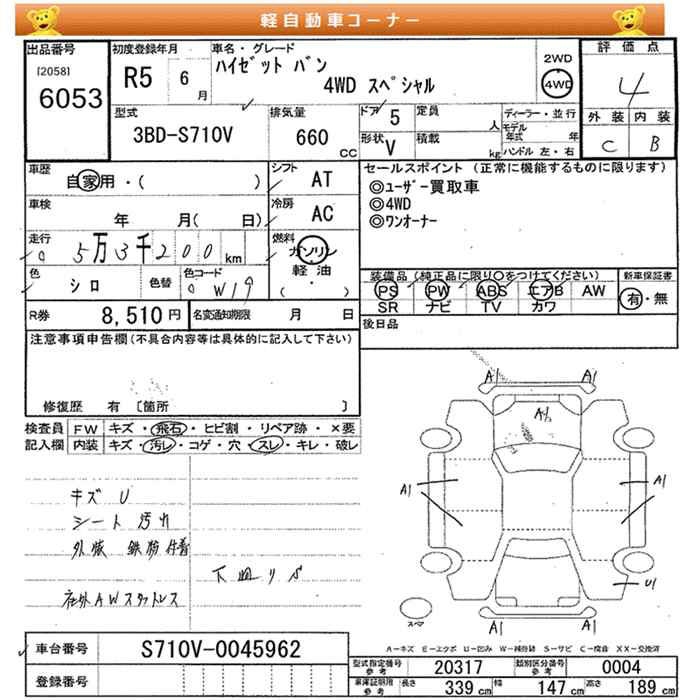 軽自動車コーナー
出品番号
[2058]
6053
初度登録年月
R5 6月
車名・グレード
ハイゼット バン
4WD スペシャル
2WD
4WD
評価点
4
外装 内装
C B
型式
3BD-S710V
排気量
660 CC
ドア 5
形状 V
定員 人
積載 kg
ディーラー・並行
モデル年式 年
ハンドル 左・右
車歴
自家用・( )
シフト AT
車検
年 月( 日)
冷房 AC
走行
5万3千200 km
燃料
ガソリン
軽油
( ・ )
色
シロ
色替
色コード
W19
R券 8,510円
名変通知期限 月 日
セールスポイント (正常に機能するものに限ります)
◎ユーザー買取車
◎4WD
◎ワンオーナー
装備品(純正品に限り○をつけてください)
PS PW ABS エアB AW
SR ナビ TV カワ
新車保証書
有・無
後日品
注意事項申告欄(不具合内容等は具体的に記入して下さい)
修復歴 有 〔箇所 〕
検査員記入欄
FW キズ・飛石・ヒビ割・リペア跡・×要
内装 キズ・汚レ・コゲ・穴・スレ・キレ・破レ
キズ U
シート 汚れ
下廻り
社外AWスタットレス
A1 A1
A1
A1 A1
U1
A1 A1
スマ
A-キズ E-エクボ U-凹み W-補修跡 S-サビ C-腐食 XX-交換済
車台番号 S710V-0045962
登録番号
型式指定番号 参考 20317
類別区分番号 参考 0004
車庫証明用 参考 長さ 339cm 幅 147cm 高さ 189cm